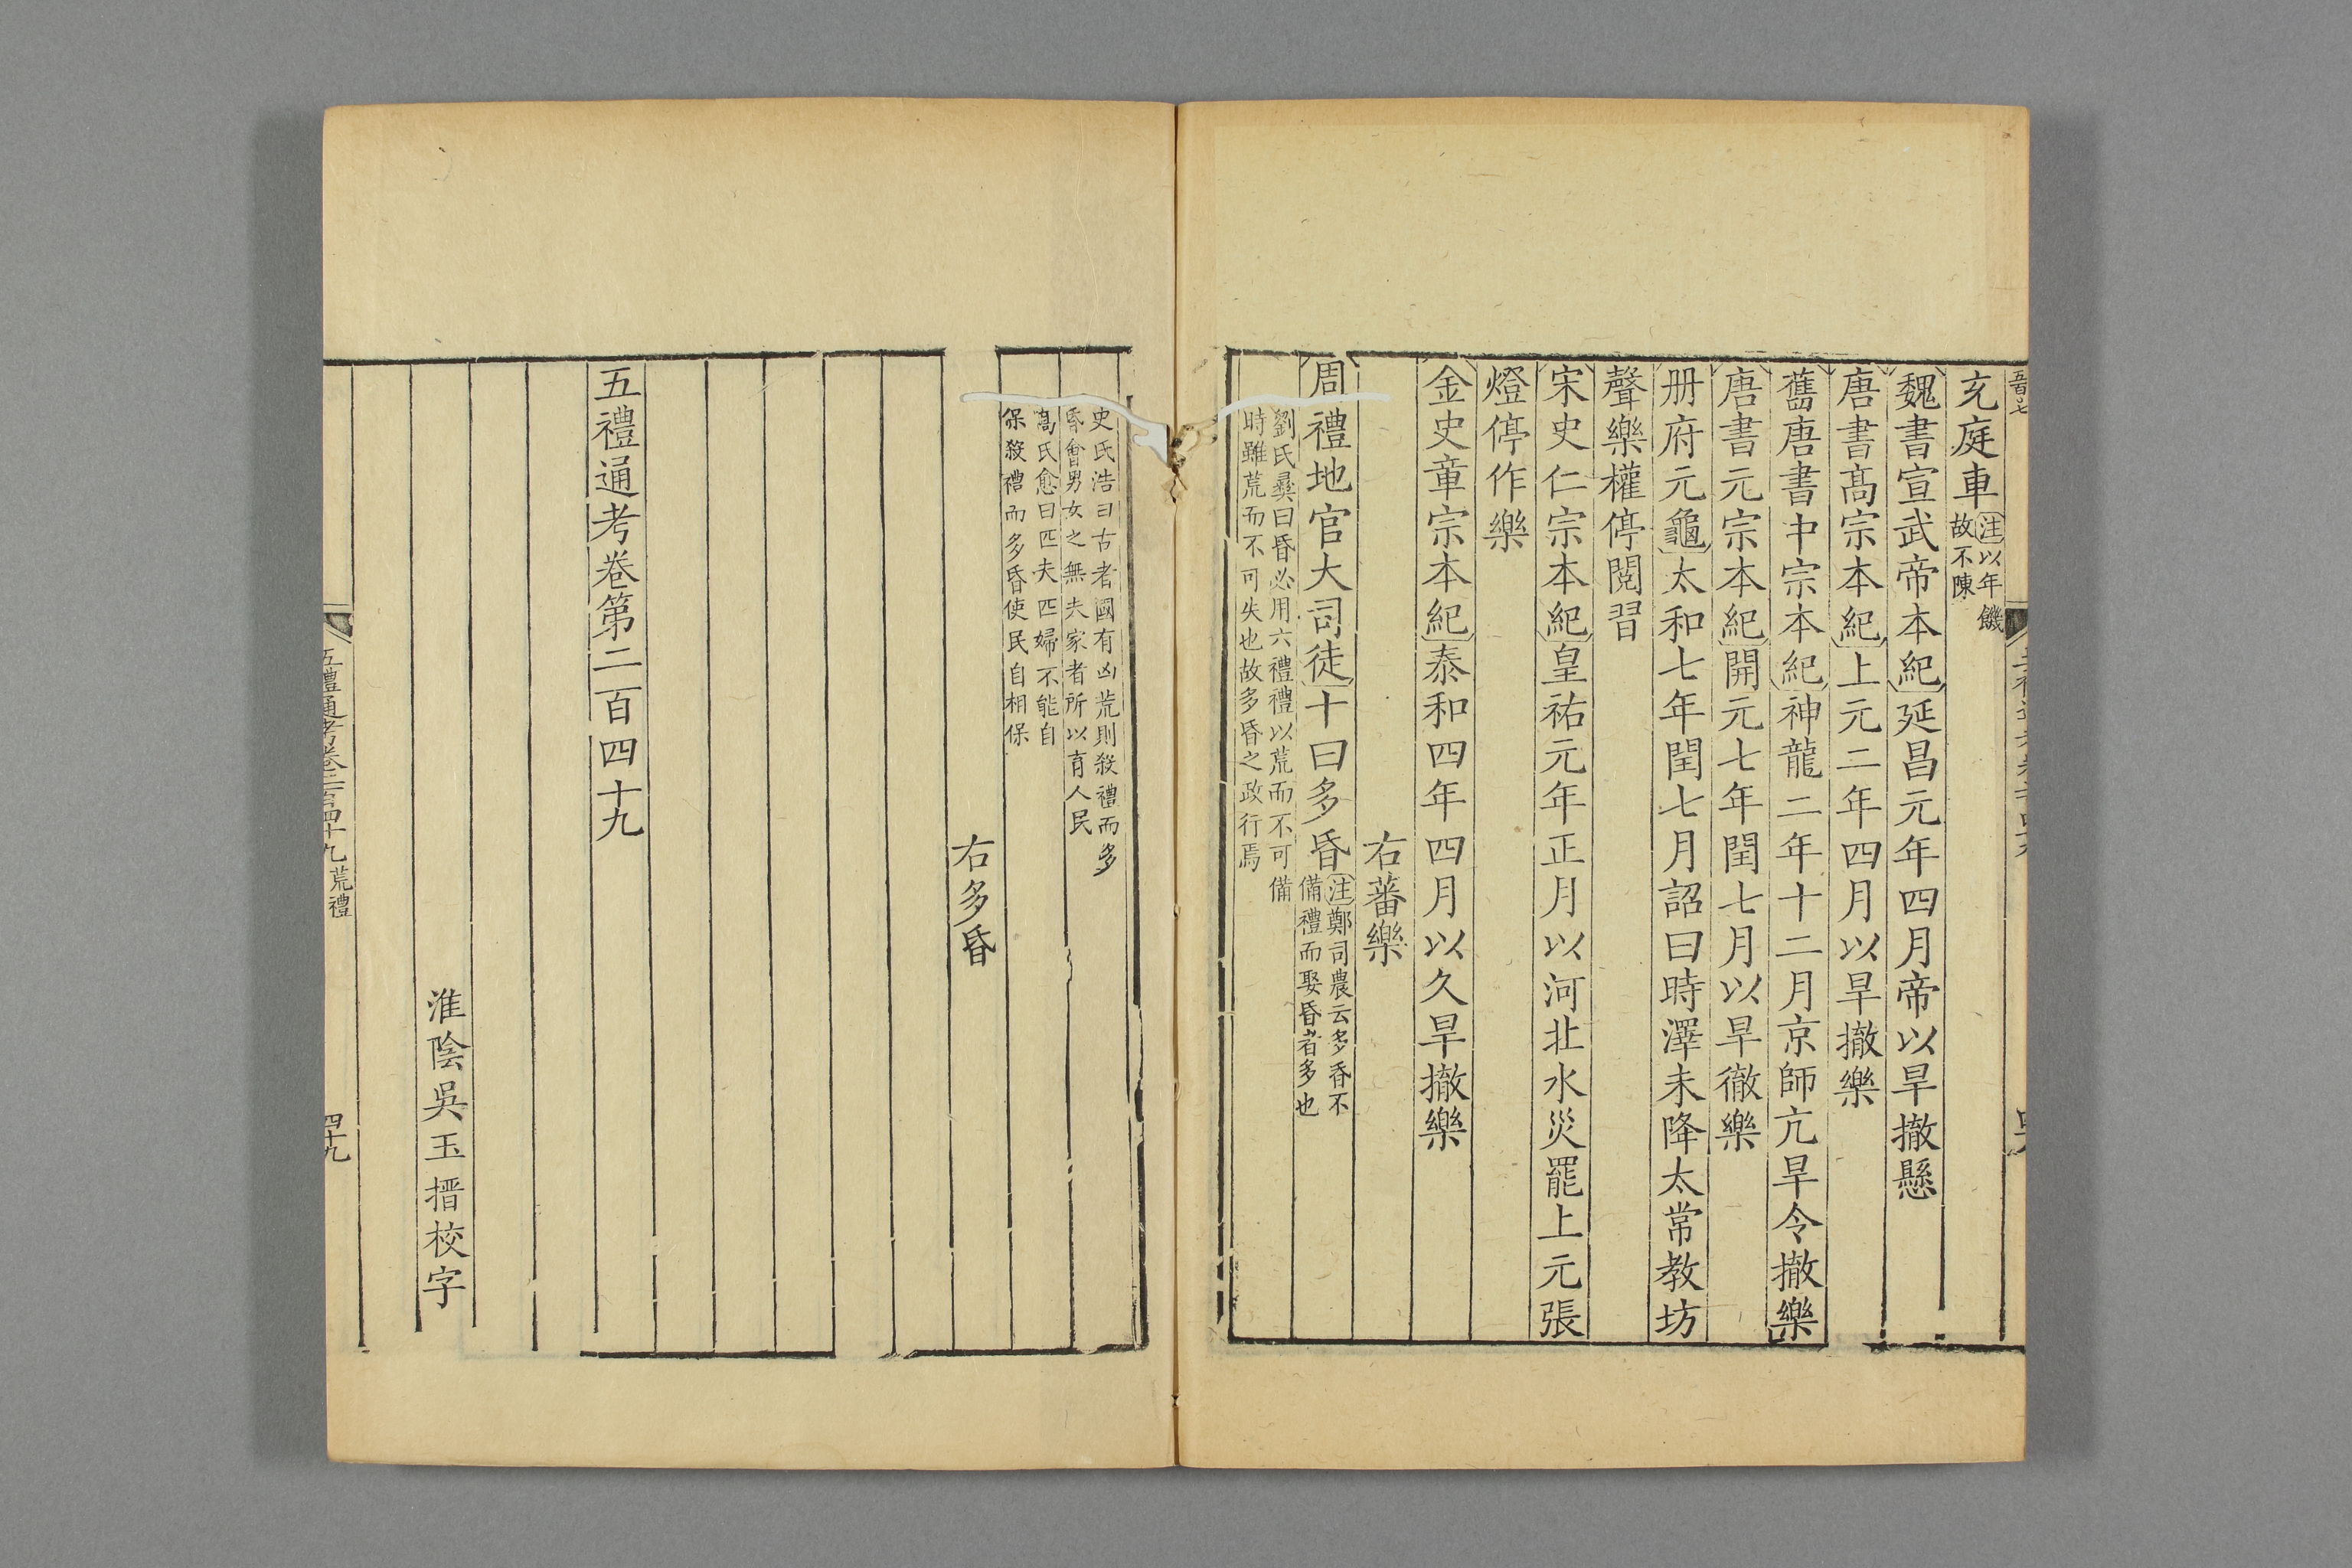 充庭車注以年饑
故不陳
魏書宣武帝本紀延昌元年四月帝以旱撤懸
唐書髙宗本紀上元二年四月以旱撤樂
舊唐書中宗本紀神龍二年十二月京師亢旱令撤樂
唐書元宗本紀開元七年閏七月以旱徹樂
册府元龜太和七年閏七月詔曰時澤未降太常教坊
聲樂權停閱習
宋史仁宗本紀皇祐元年正月以河北水災罷上元張
燈停作樂
金史章宗本紀泰和四年四月以久旱撤樂
右蕃樂
周禮地官大司徒十曰多昏注鄭司農云多昏不
備禮而娶昏者多也
劉氏彝曰昏必用六禮禮以荒而不可備
時雖荒而不可失也故多昏之政行焉
史氏浩曰古者國有凶荒則殺禮而多
昏會男女之無夫家者所以育人民
髙氏愈曰匹夫匹婦不能自
保殺禮而多昏使民自相保
右多昏
五禮通考卷第二百四十九
淮陰吳玉搢校字
五禮通考卷二百四十九 荒禮
四十九